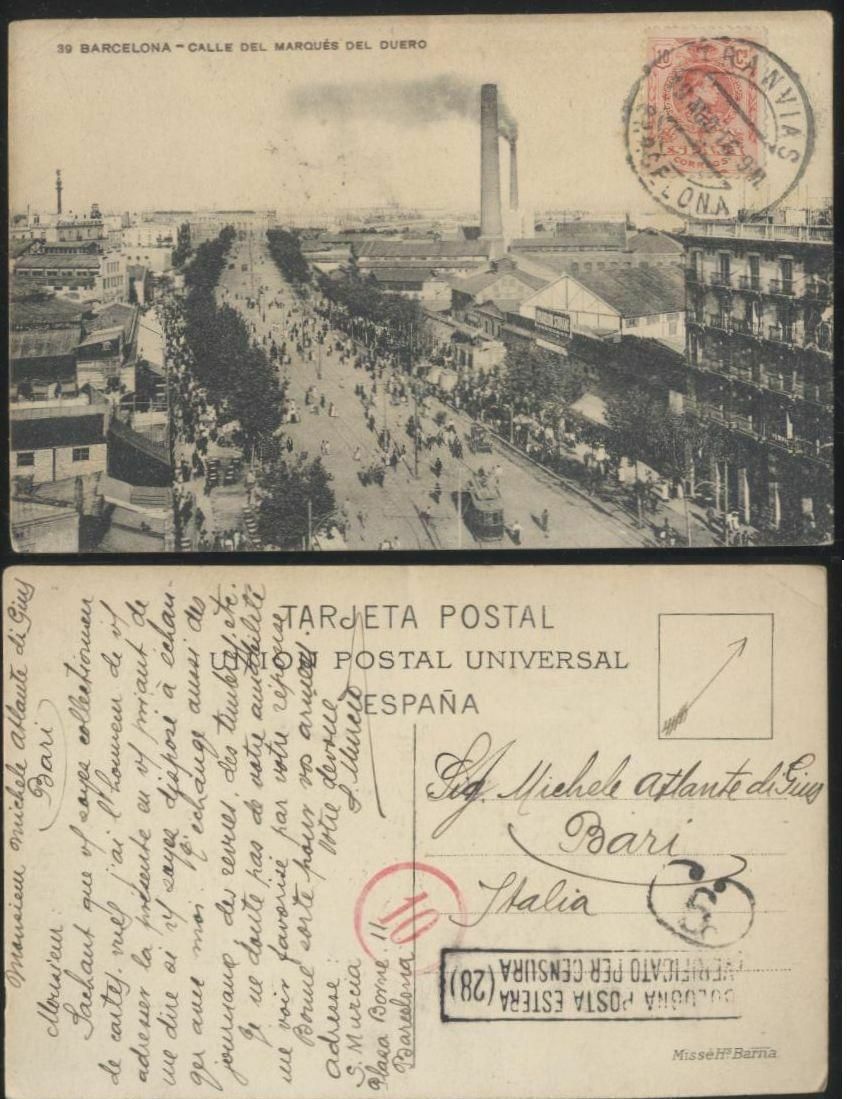 39 BARCELONA - CALLE DEL MARQUÉS DEL DUERO
10 Cs
CORREOS
TRANVIAS
BARCELONA
TARJETA POSTAL
UNION POSTAL UNIVERSAL
ESPAÑA
Monsieur Michele Atlante di Gius
Bari
Monsieur
Sachant que vs soyez collectionneur
de cartes. vues j'ai l'honneur de vs
adresser la présente en vs priant de
me dire si vs soyez disposé à echan-
ger avec moi. J'echange aussi des
journaux, des revues, des timbres, etc.
Je ne doute pas de votre amabilité
me voir favorisé par votre réponse
Bonne sorte pour vos armées.
Votre devoué
S. Murcia
adresse:
S. Murcia
Plasa Borne. 11
Barcelona
Sig. Michele Atlante di Gius
Bari
Italia
10
BOLOGNA POSTA ESTERA (28)
VERIFICATO PER CENSURA
Missé Hs Barna